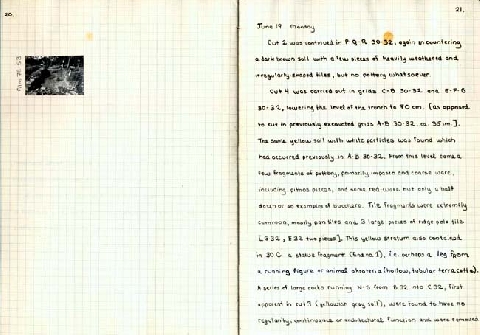 20.
21.
June 19 Monday
Cut 2 was continued in P Q R 30-32, again encountering
a dark brown soil with a few pieces of heavily weathered and
irregularly shaped tiles, but no pottery whatsoever.
Cut 4 was carried out in grids C-D 30-32 and
30-32, lowering the level of the trench to 80 cm. [as opposed
to cut in previously excavated grids A-B 30-32 ca. 35 cm.].
The same yellow soil with white particles was found which
had occurred previously in A-B 30-32. From this level came a
few fragments of pottery, primarily impasto and coarse ware,
including pithos pieces, and some red-ware but only a half
dozen or so examples of bucchero. Tile fragments were extremely
common, mostly pan tiles and 3 large pieces of ridge pole tile
two pieces]. This yellow stratum also contained
in 30 C a statue fragment (find no. 1), i.e. perhaps a leg from
a running figure or animal akroteria (hollow, tubular terracotta).
A series of large rocks running N-S from B 32 into C 32, first
apparent in cut 3 (yellowish gray soil), were found to have no
regularity, continuousness or architectural function and were removed.